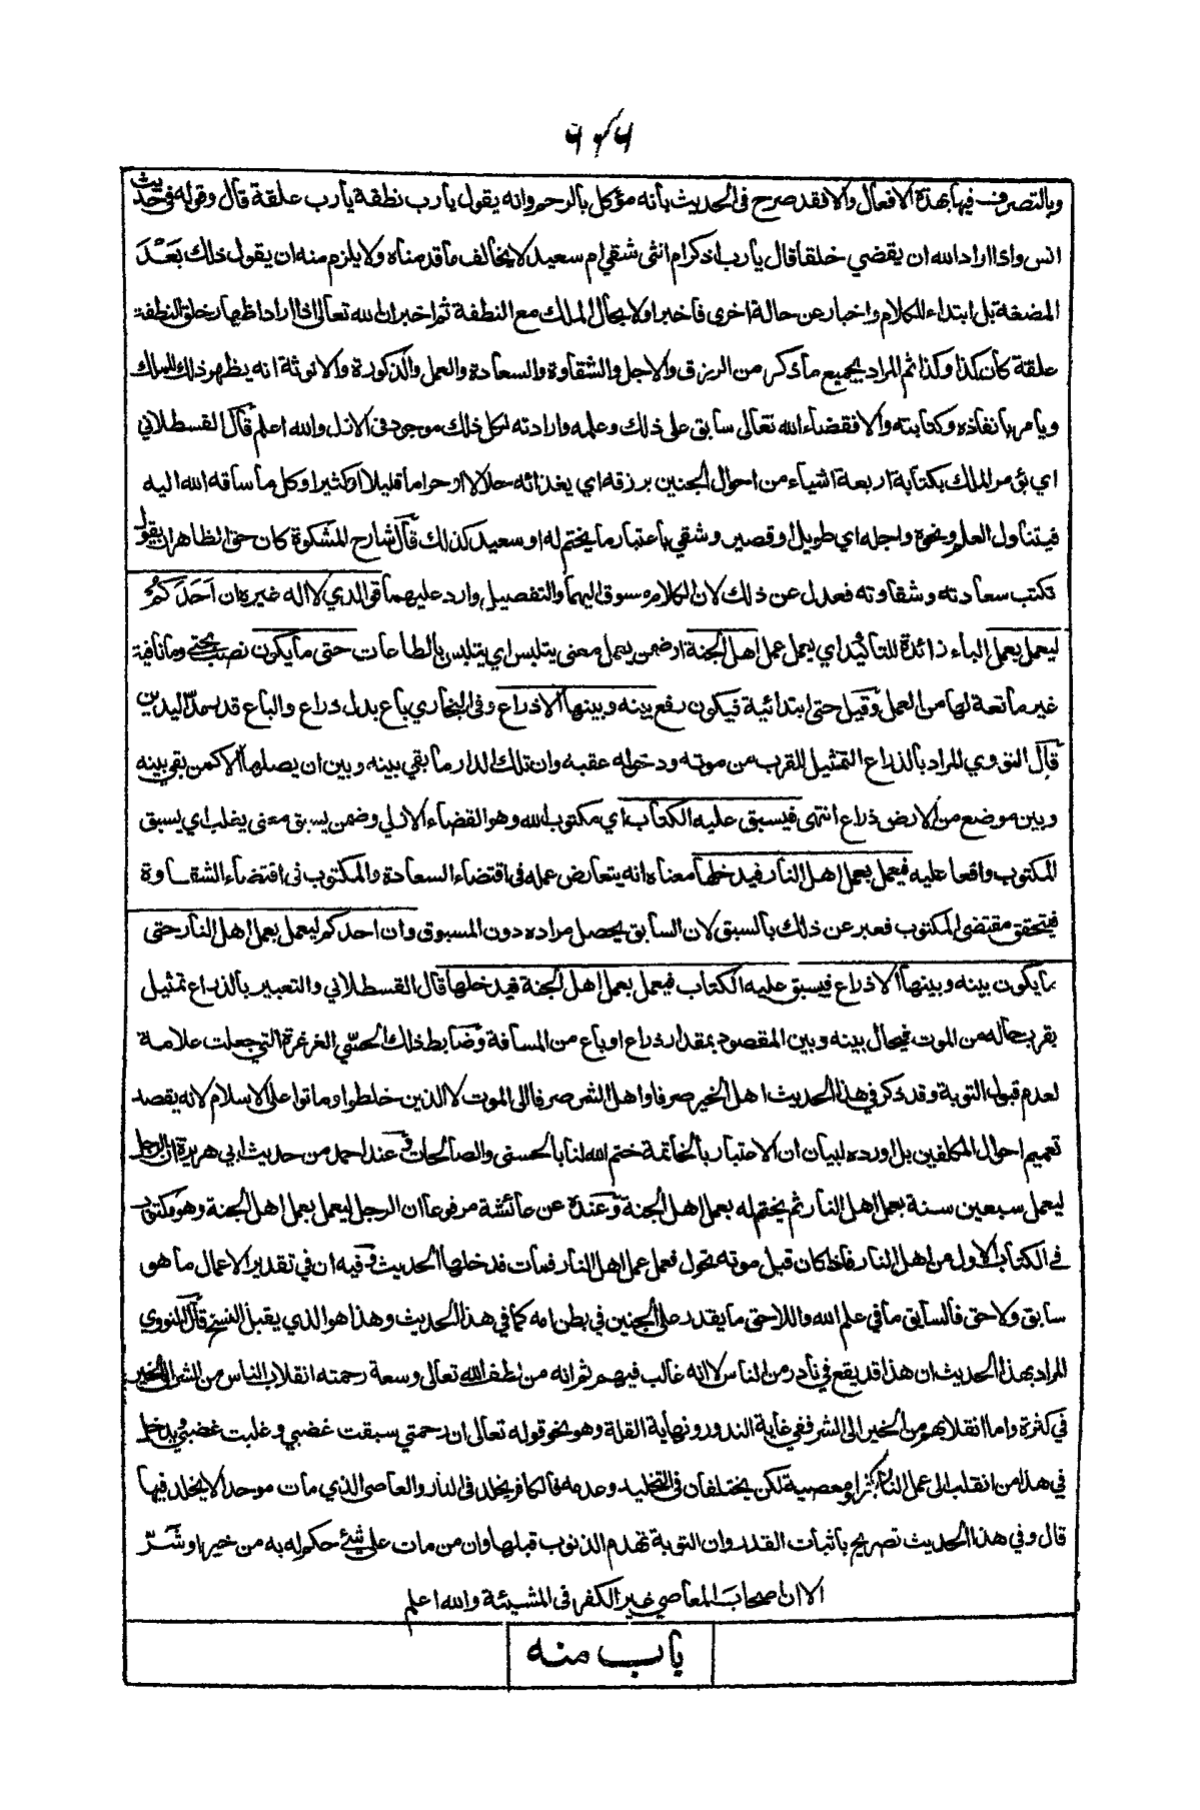 وبالتصرف فيها بهذه الافعال والا فقد صرح فى الحديث بأنه مؤكل بالرحم وانه يقول يارب نطفة يارب علقة قال وقوله فى حديث
انس واذا اراد الله ان يقضي خلقا قال يارب اذكر ام انثى شقي ام سعيد لا يخالف ما قدمناه ولا يلزم منه ان يقول ذلك بَعْدَ
المضغة بل ابتداء للكلام واخبار عن حالة اخرى فأخبر اولا بحال الملك مع النطفة ثم اخبر ان الله تعالى اذا اراد اظهار خلق النطفة
علقة كان كذا وكذا ثم المراد بجميع ما ذكر من الرزق والاجل والشقاوة والسعادة والعمل والذكورة والانوثة انه يظهر ذلك للملك
ويأمر بانفاذه وكتابته والا فقضاء الله تعالى سابق على ذلك وعلمه وارادته لكل ذلك موجود فى الازل والله اعلم قال القسطلاني
اي يؤمر الملك بكتابة اربعة اشياء من احوال الجنين برزقه اي يغذائه حلالا او حراما قليلا او كثيرا وكل ما ساقه الله اليه
فيتناول العلم ونحوه واجله اي طويل او قصير وشقي باعتبار ما يختم له او سعيد كذلك قال شارح المشكوة كان حق الظاهر ان يقول
تكتب سعادته وشقاوته فعدل عن ذلك لان الكلام مسوق اليهما والتفصيل وارد عليهما فو الذي لا اله غيره ان اَحَدَكُمْ
ليعمل بعمل الباء زائدة للتأكيد اي يعمل عمل اهل الجنة او ضمن يعمل معنى يتلبس اي يتلبس بالطاعات حتى ما يكون نصب بحتى وما نافية
غير مانعة لها من العمل وقيل حتى ابتدائية فيكون رفع بينه وبينها الا ذراع وفى البخاري باع بدل ذراع والباع قدر مدّ اليدين
قال النووي المراد بالذراع التمثيل للقرب من موته ودخوله عقبه وان تلك الدار ما بقي بينه وبين ان يصلها الا كمن بقي بينه
وبين موضع من الارض ذراع انتهى فيسبق عليه الكتاب اي مكتوب الله وهو القضاء الازلي وضمن يسبق معنى يغلب اي يسبق
المكتوب واقعا عليه فيعمل بعمل اهل النار فيدخلها معناه انه يتعارض عمله فى اقتضاء السعادة والمكتوب فى اقتضاء الشقاوة
فيتحقق مقتضى المكتوب فعبر عن ذلك بالسبق لان السابق يحصل مراده دون المسبوق وان احدكم ليعمل بعمل اهل النار حتى
ما يكون بينه وبينها الا ذراع فيسبق عليه الكتاب فيعمل بعمل اهل الجنة فيدخلها قال القسطلاني والتعبير بالذراع تمثيل
بقرب حاله من الموت فيحال بينه وبين المقصود بمقدار ذراع او باع من المسافة وضابط ذلك الحسّي الغرغرة التي جعلت علامة
لعدم قبول التوبة وقد ذكر في هذا الحديث اهل الخير صرفا واهل الشر صرفا الى الموت لا الذين خلطوا وماتوا على الاسلام لانه يقصد
تعميم احوال المكلفين بل اورده لبيان ان الاعتبار بالخاتمة ختم الله لنا بالحسنى والصالحات وعند احمد من حديث ابي هريرة ان الرجل
ليعمل سبعين سنة بعمل اهل النار ثم يختم له بعمل اهل الجنة وعنده عن عائشة مرفوعا ان الرجل ليعمل بعمل اهل الجنة وهو مكتوب
في الكتاب الاول من اهل النار فاذا كان قبل موته تحول فعمل عمل اهل النار فمات فدخلها الحديث وفيه ان في تقدير الاعمال ما هو
سابق ولاحق فالسابق ما في علم الله واللاحق ما يقدر على الجنين في بطن امه كما في هذا الحديث وهذا هو الذي يقبل النسخ قال النووي
المراد بهذا الحديث ان هذا قد يقع في نادر من الناس لا انه غالب فيهم ثم انه من لطف الله تعالى وسعة رحمته انقلاب الناس من الشر الى الخير
في كثرة واما انقلابهم من الخير الى الشر ففي غاية الندور ونهاية القلة وهو نحو قوله تعالى ان رحمتي سبقت غضبي وغلبت غضبي ويدخل
في هذا من انقلب الى عمل النار بكفر او معصية لكن يختلفان فى التخليد وعدمه فالكافر يخلد فى النار والعاصى الذي مات موحدا لا يخلد فيها
قال وفي هذا الحديث تصريح باثبات القدر وان التوبة تهدم الذنوب قبلها وان من مات على شئ حكم له به من خير او شَرّ
الا ان اصحاب المعاصي غير الكفر فى المشيئة والله اعلم
باب منه